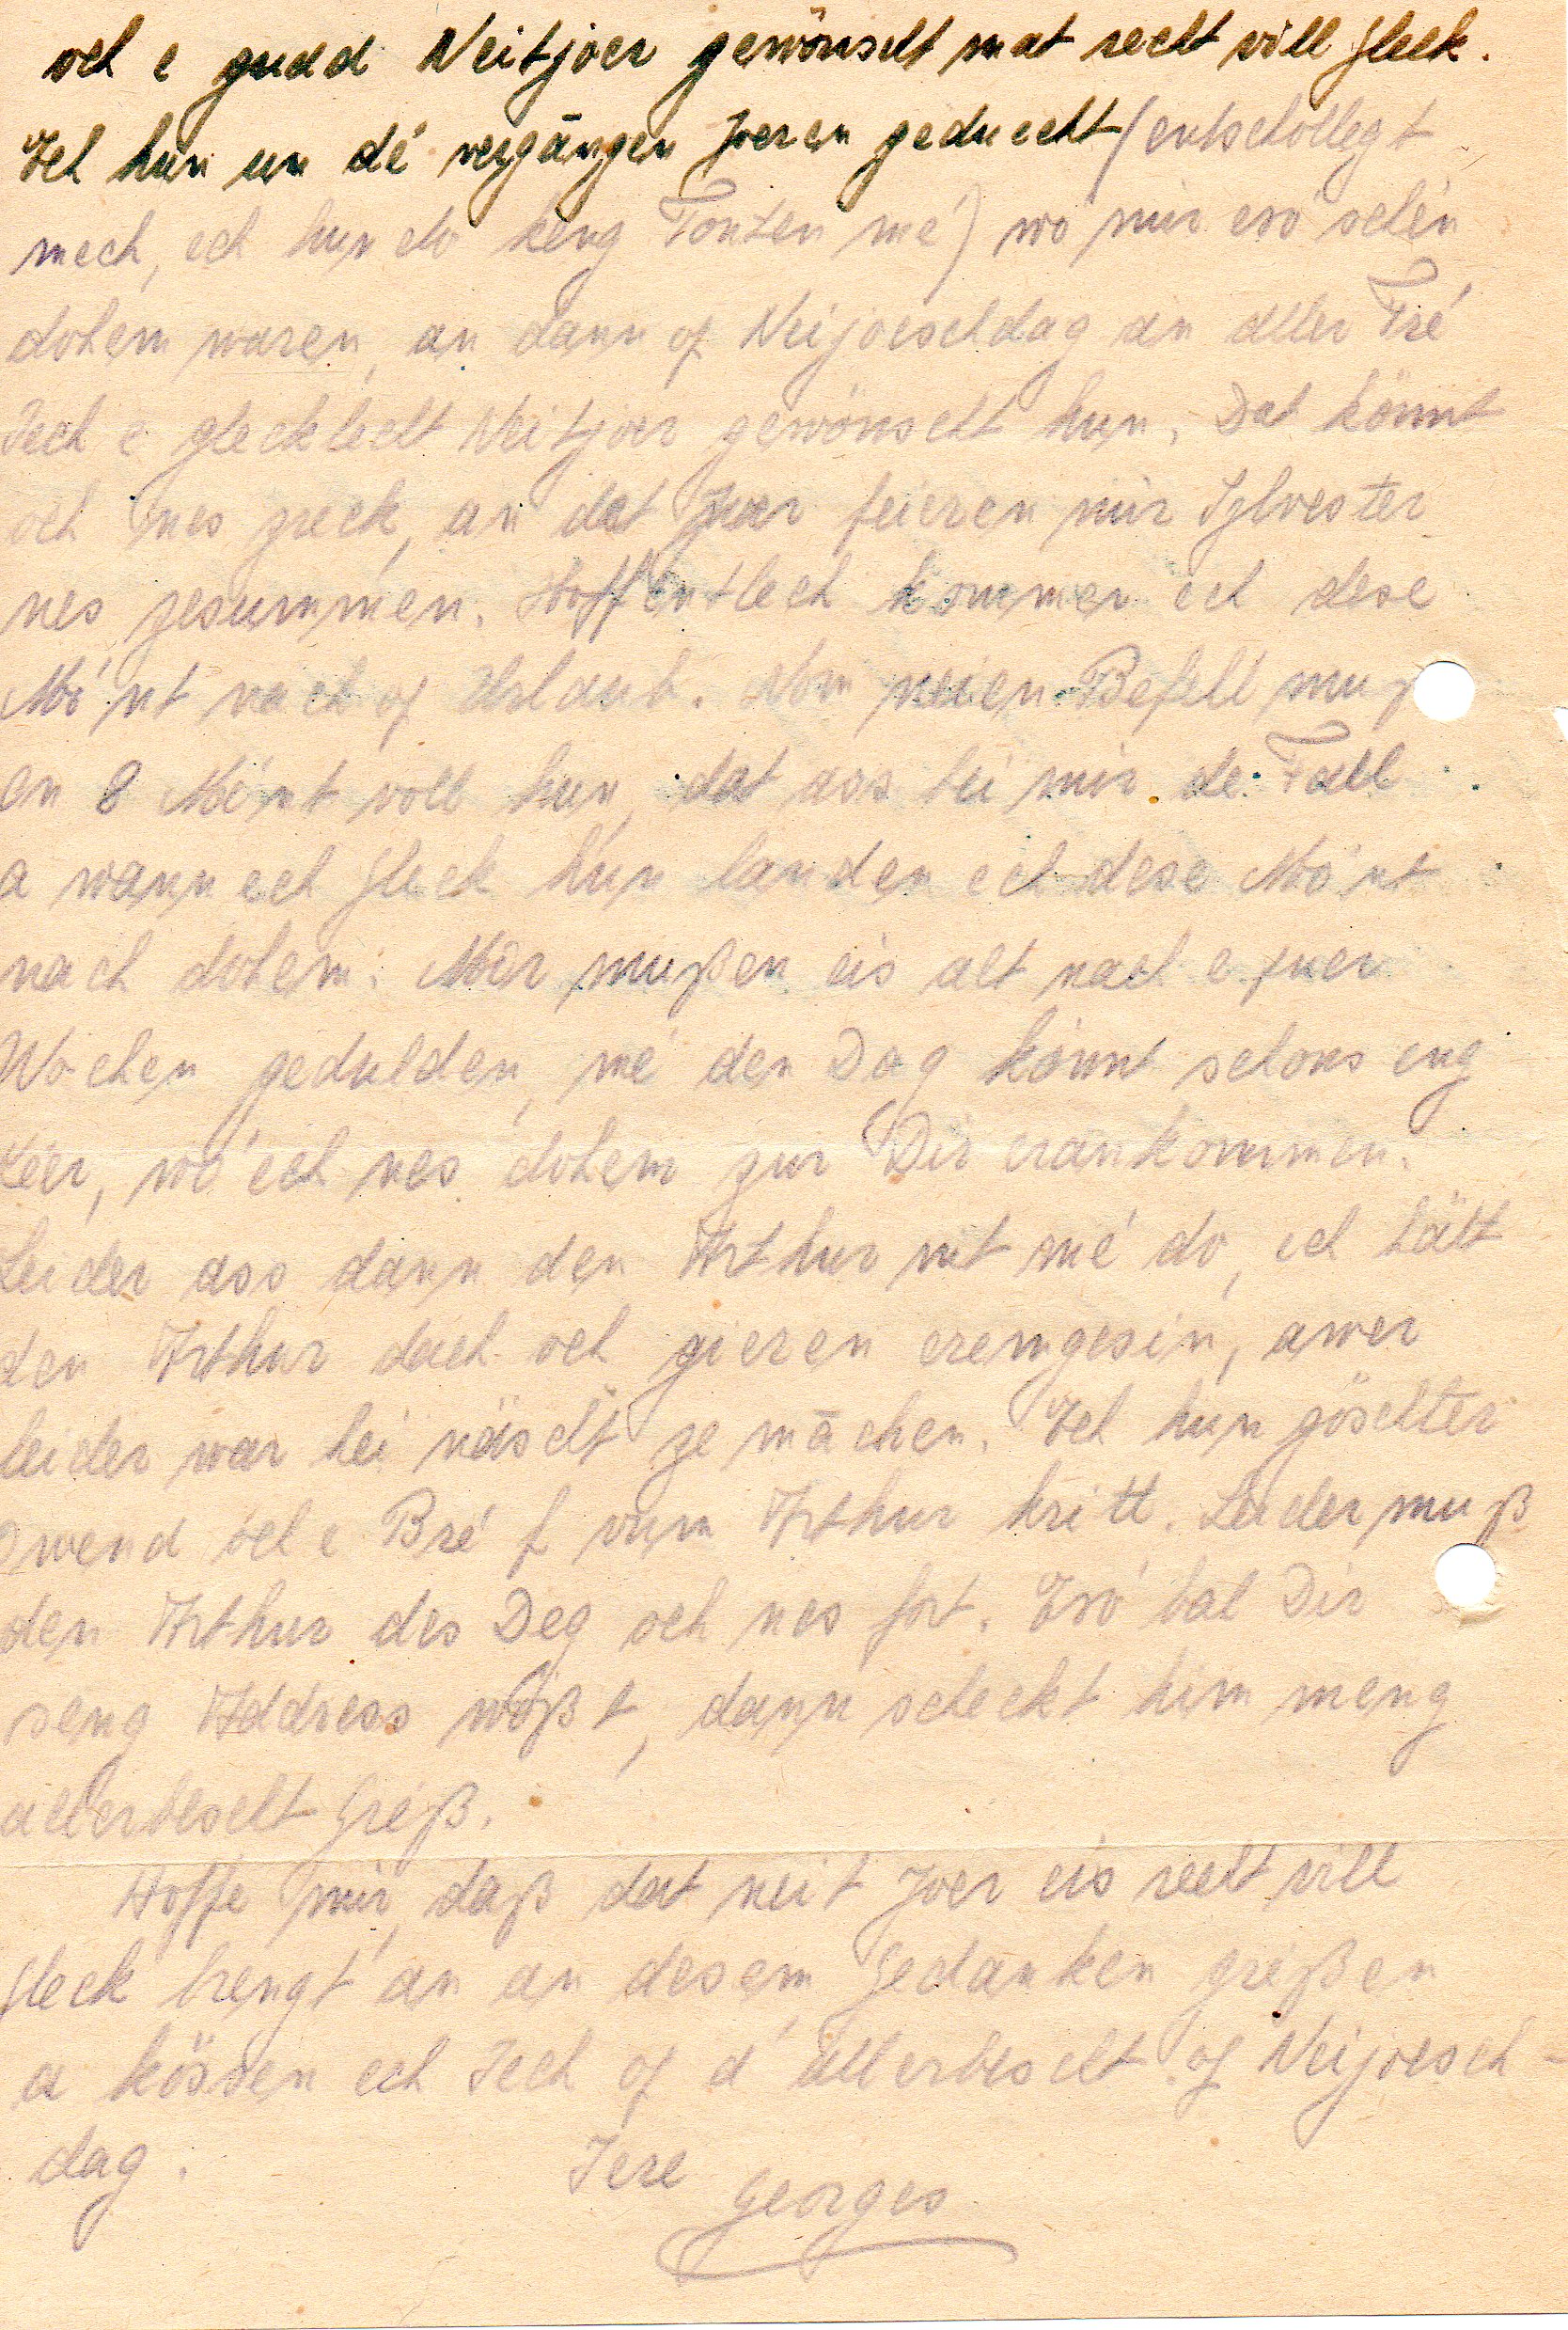 och e gudd Neitjoer gewönscht mat recht vill Gleck.
Ech hun un dé vergangen Joeren geduecht (entschöllegt
mech, ech hun elo keng Tonten mé) wó mir esó schén
dohém waren, an dann of Neijoeschdag an aller Fré
Iech e glecklecht Neitjoer gewönscht hun. Dat kömmt
och nes zreck, an dat Joer feieren mir Sylvester
nes zesummen. Hoffentlech kommen ech dese
Mónt nach of Urlaub. Nom neien Befell muß
en 8 Mónt voll hun, dat ass bei mir de Fall
a wann ech Gleck hun landen ech dese Mónt
nach dohem. Mir mußen eis alt nach e puer
Wochen gedulden, mé den Dag kömmt schons eng
Kéer, wó ech nes dohém zur Dir erankommen.
Leider ass dann den Arthur nit mé do, ech hätt
den Arthur dach och gieren eremgesin, awer
leider war hei näischt ze māchen. Ech hun göschter
Owend och e Bréf vum Arthur kritt. Leider muß
den Arthur des Deg och nes fort. Esó bal Dir
seng Address wößt, dann scheckt him meng
allerbescht Gréß.
Hoffe mir, daß dat neit Joer eis recht vill
Gleck brengt an an desem Gedanken gréßen
a kössen ech Iech of d'allerbescht of Neijoesch-
dag.
Iere Georges